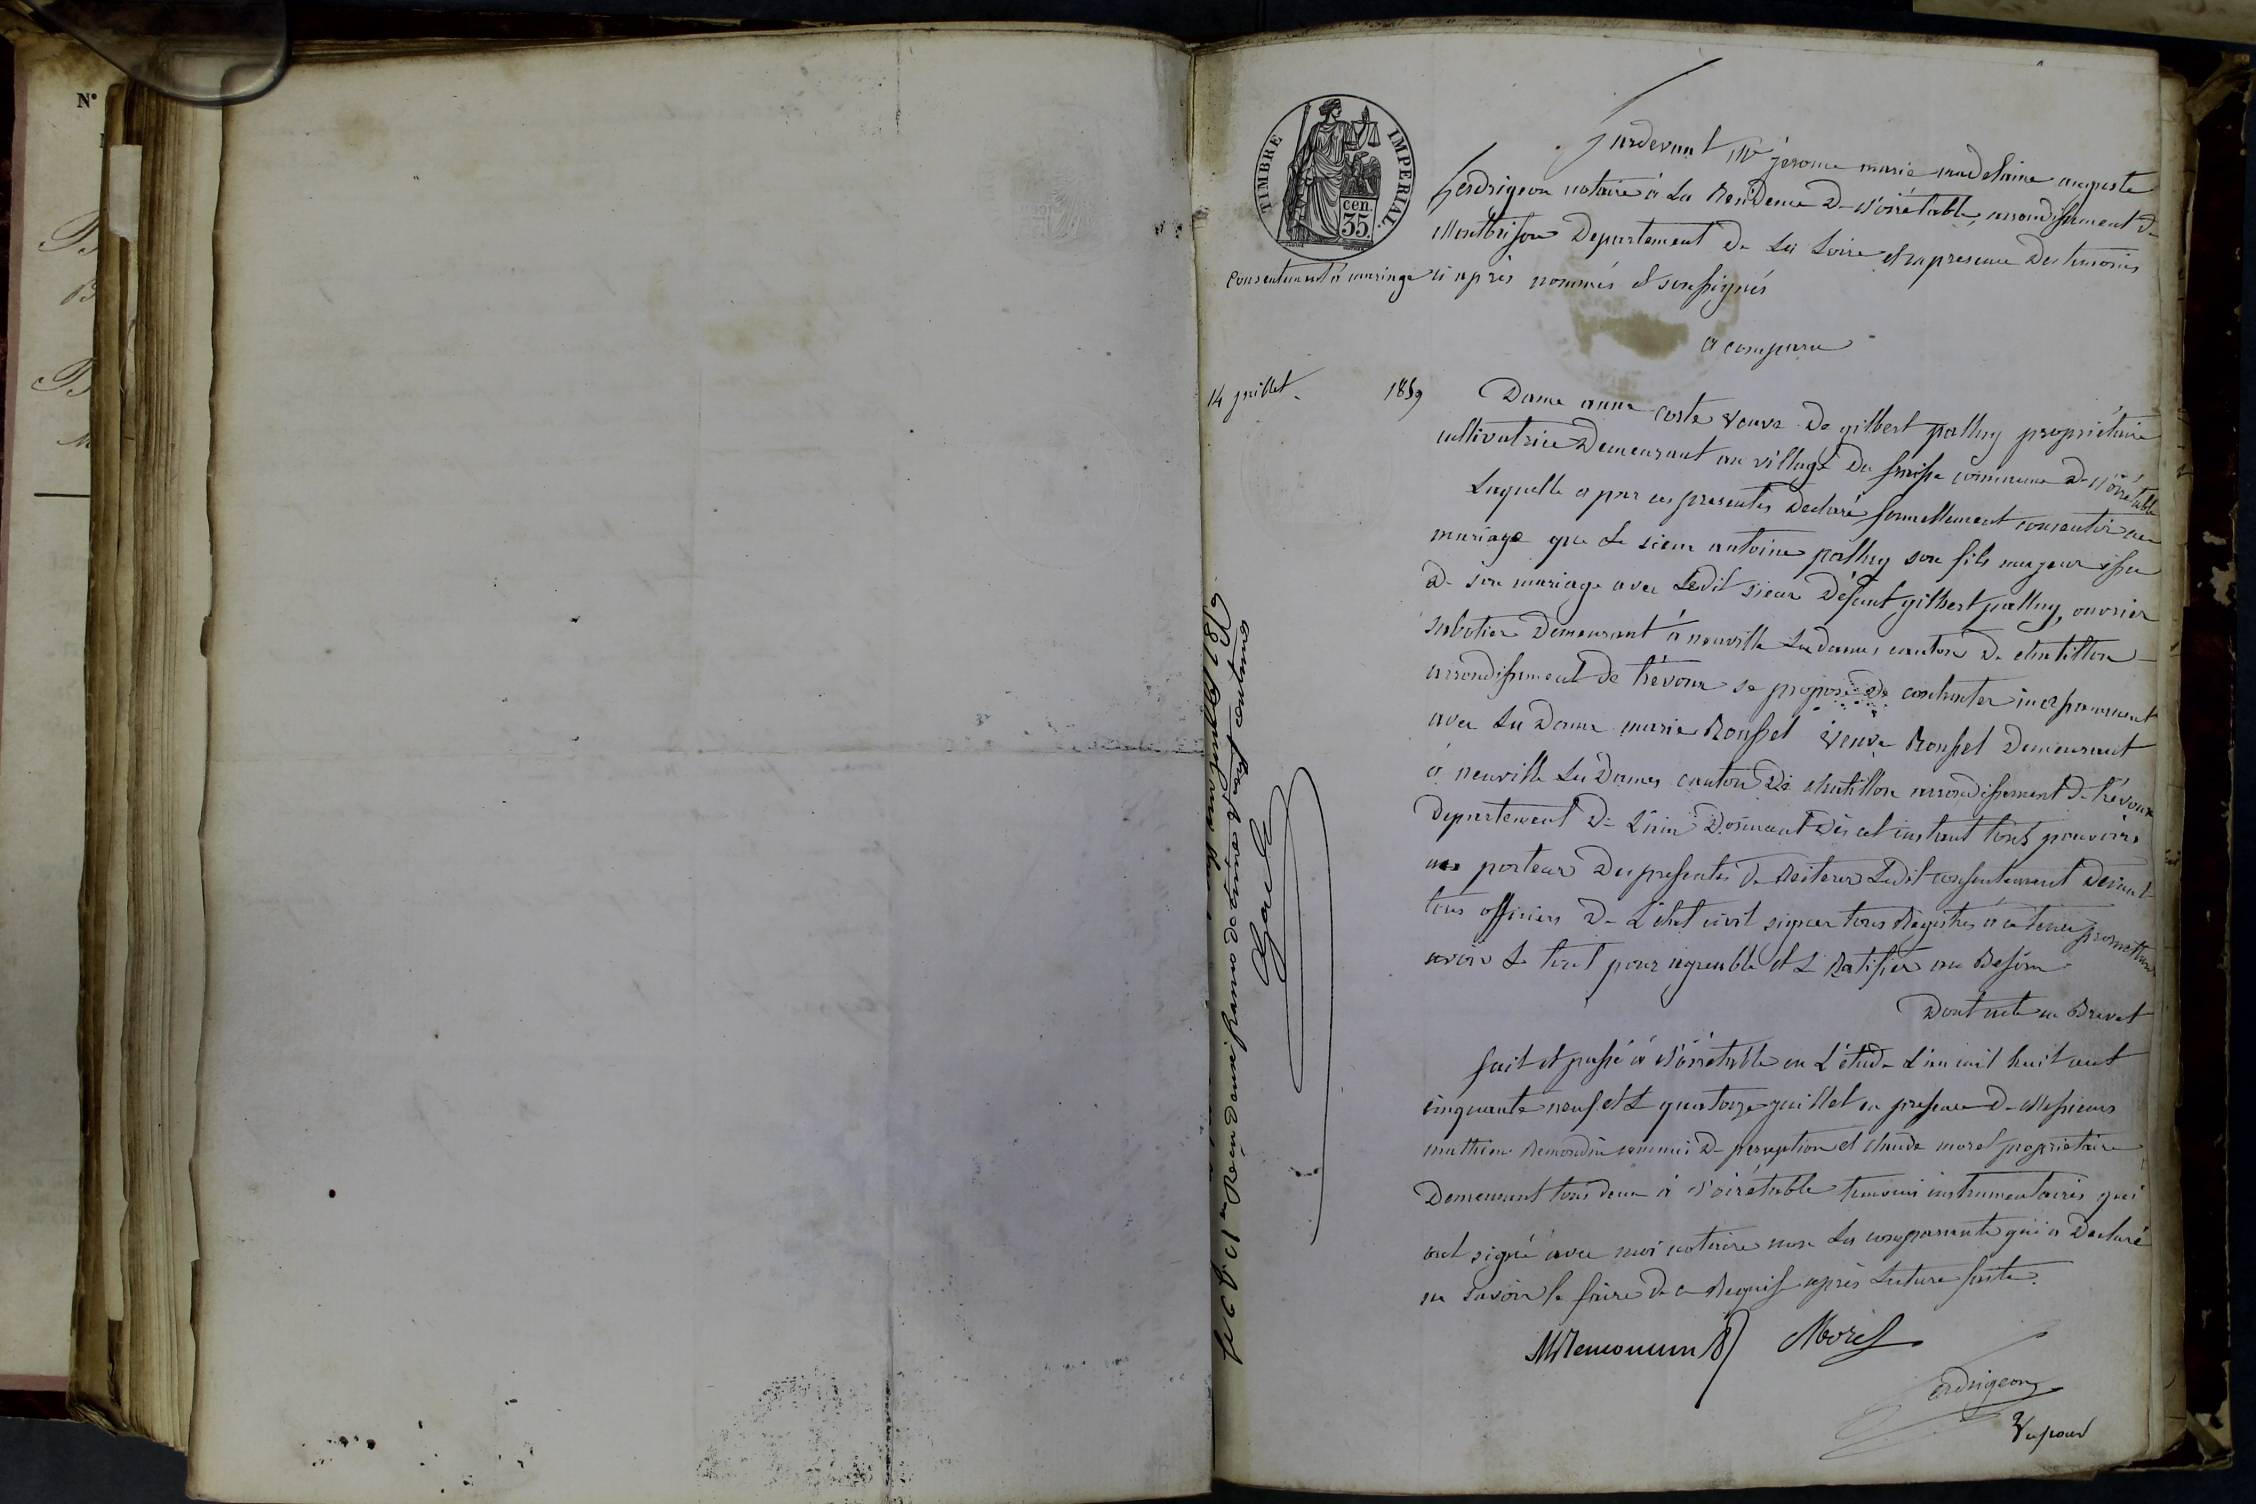 N°
TIMBRE IMPERIAL
cen.
35.
Pardevant Me jerome marie madelaine auguste
Perdrigeon notaire à La Residence De Noirétable, arrondissement De
Montbrison Departement De La Loire et en presence Des temoins
Consentement à mariage
ci après nommés et soussignés
a comparu
14 juillet 1859
Dame anne coste veuve De gilbert palluy propriétaire
cultivatrice Demeurant au village Du commune De Noirétable
Laquelle a par ces presentes Declaré formellement consentir au
mariage que Le sieur antoine palluy son fils majeur issu
De son mariage avec Ledit sieur Défunt gilbert palluy, ouvrier
sabotier Demeurant à neuville Les Dames canton De chatillon
arrondissement De trévoux se propose De contracter incessamment
avec La Dame marie Rousset veuve Rousset Demeurant
à neuville Les Dames canton De chatillon arrondissement De trévoux
Departement De L'ain Donnant Dès cet instant tous pouvoirs
au porteur Des presentes De Reiterer Ledit consentement Devant
tous officiers De L'état civil signer tous Registres à ce tenus promettant
avoir Le tout pour agreable et Le Ratifier au Besoin
Dont acte en Brevet
fait et passé à Noirétable en L'étude L'an mil huit cent
cinquante neuf et Le quatorze juillet en presence De Messieurs
mathieu Remondin commis De perception et claude morel propriétaire
Demeurant tous deux à Noirétable temoins instrumentaires qui
ont signé avec moi notaire non La comparante qui a Declaré
ne savoir Le faire De ce Requise après Lecture faite.
Morel
Perdrigeon
Vu pour
juillet 1859
Reçu deux francs décime vingt centimes